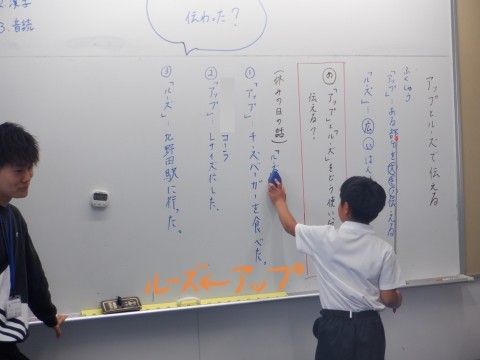 アップとルーズで伝える
ふくしゅう
「アップ」ーある部分を大きく伝える
「ルーズ」ー広いはん
め「アップ」と「ルーズ」をどう使い
伝える?
(休みの日の話)「ルーズ
①「アップ」ーチーズバーガーを食べた。
コーラ
②「アップ」ーLサイズにした。
③「ルーズ」ー北野田駅に行った。
伝わった?
2.漢字
3.音読
ルーズ←アップ